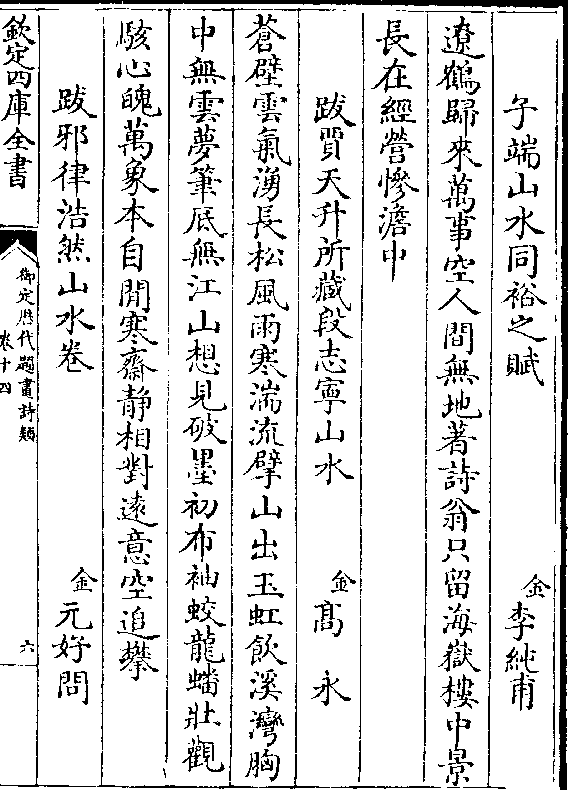 子端山水同裕之賦 金 李純甫
遼鶴歸來萬事空人間無地著詩翁只留海嶽樓中景
長在經營慘澹中
跋賈天升所藏段志寧山水 金 高永
蒼壁雲氣湧長松風雨寒湍流擘山出玉虹飲溪灣胸
中無雲夢筆底無江山想見破墨初布袖蛟龍蟠壯觀
駭心魄萬象本自閒寒齋静相對遠意空追攀
跋邪律浩然山水卷 金 元好問
欽定四庫全書
御定歴代題畫詩類
卷十四
六